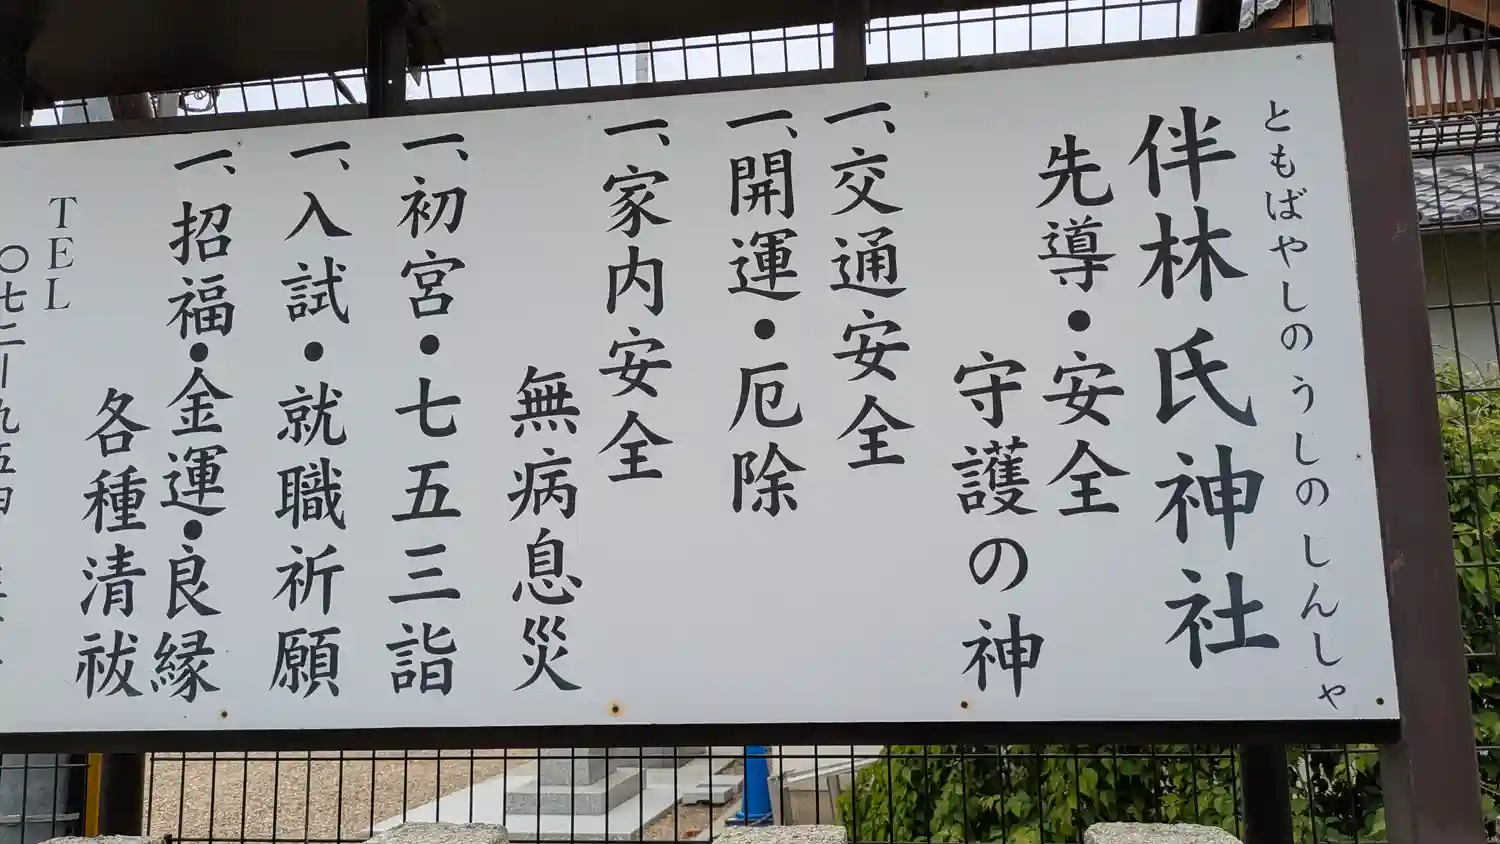 ともばやしのうしのしんしゃ
伴林氏神社
先導・安全
守護の神
一、交通安全
一、開運・厄除
一、家内安全
無病息災
一、初宮・七五三詣
一、入試・就職祈願
一、招福・金運・良縁
各種清祓
TEL
〇七二ー九五四